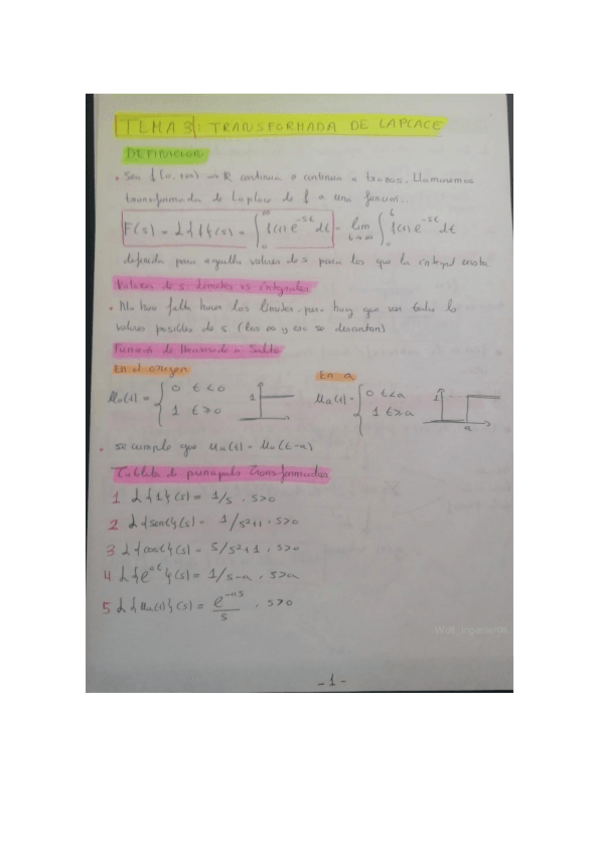 TEMA 3: TRANSFORMADA DE LAPLACE
DEFINICION
• Sea f [0, +∞) → R continua o continua a trozos. Llamaremos
transformada de Laplace de f a una funcion:
F(s) = L{f}(s) = ∫₀^∞ f(t) e^(-st) dt = lim b→∞ ∫₀^b f(t) e^(-st) dt
definida para aquellos valores de s para los que la integral exista
Valores de s: limites vs integrales
• No hace falta hacer los limites, pero hay que ver todos los
valores posibles de s (los ∞ y eso se descartan)
Funcion de Heaviside o Salto
En el origen
En a
u₀(t) = { 0 t<0
1 t>0
1
uₐ(t) = { 0 t<a
1 t>a
1
a
• se cumple que uₐ(t) = u₀(t-a)
Tablita de principales transformadas
1 L{1}(s) = 1/s , s>0
2 L{sent}(s) = 1/s²+1 , s>0
3 L{cost}(s) = s/s²+1 , s>0
4 L{e^(at)}(s) = 1/s-a , s>a
5 L{uₐ(t)}(s) = e^(-as)/s , s>0
- 1 -